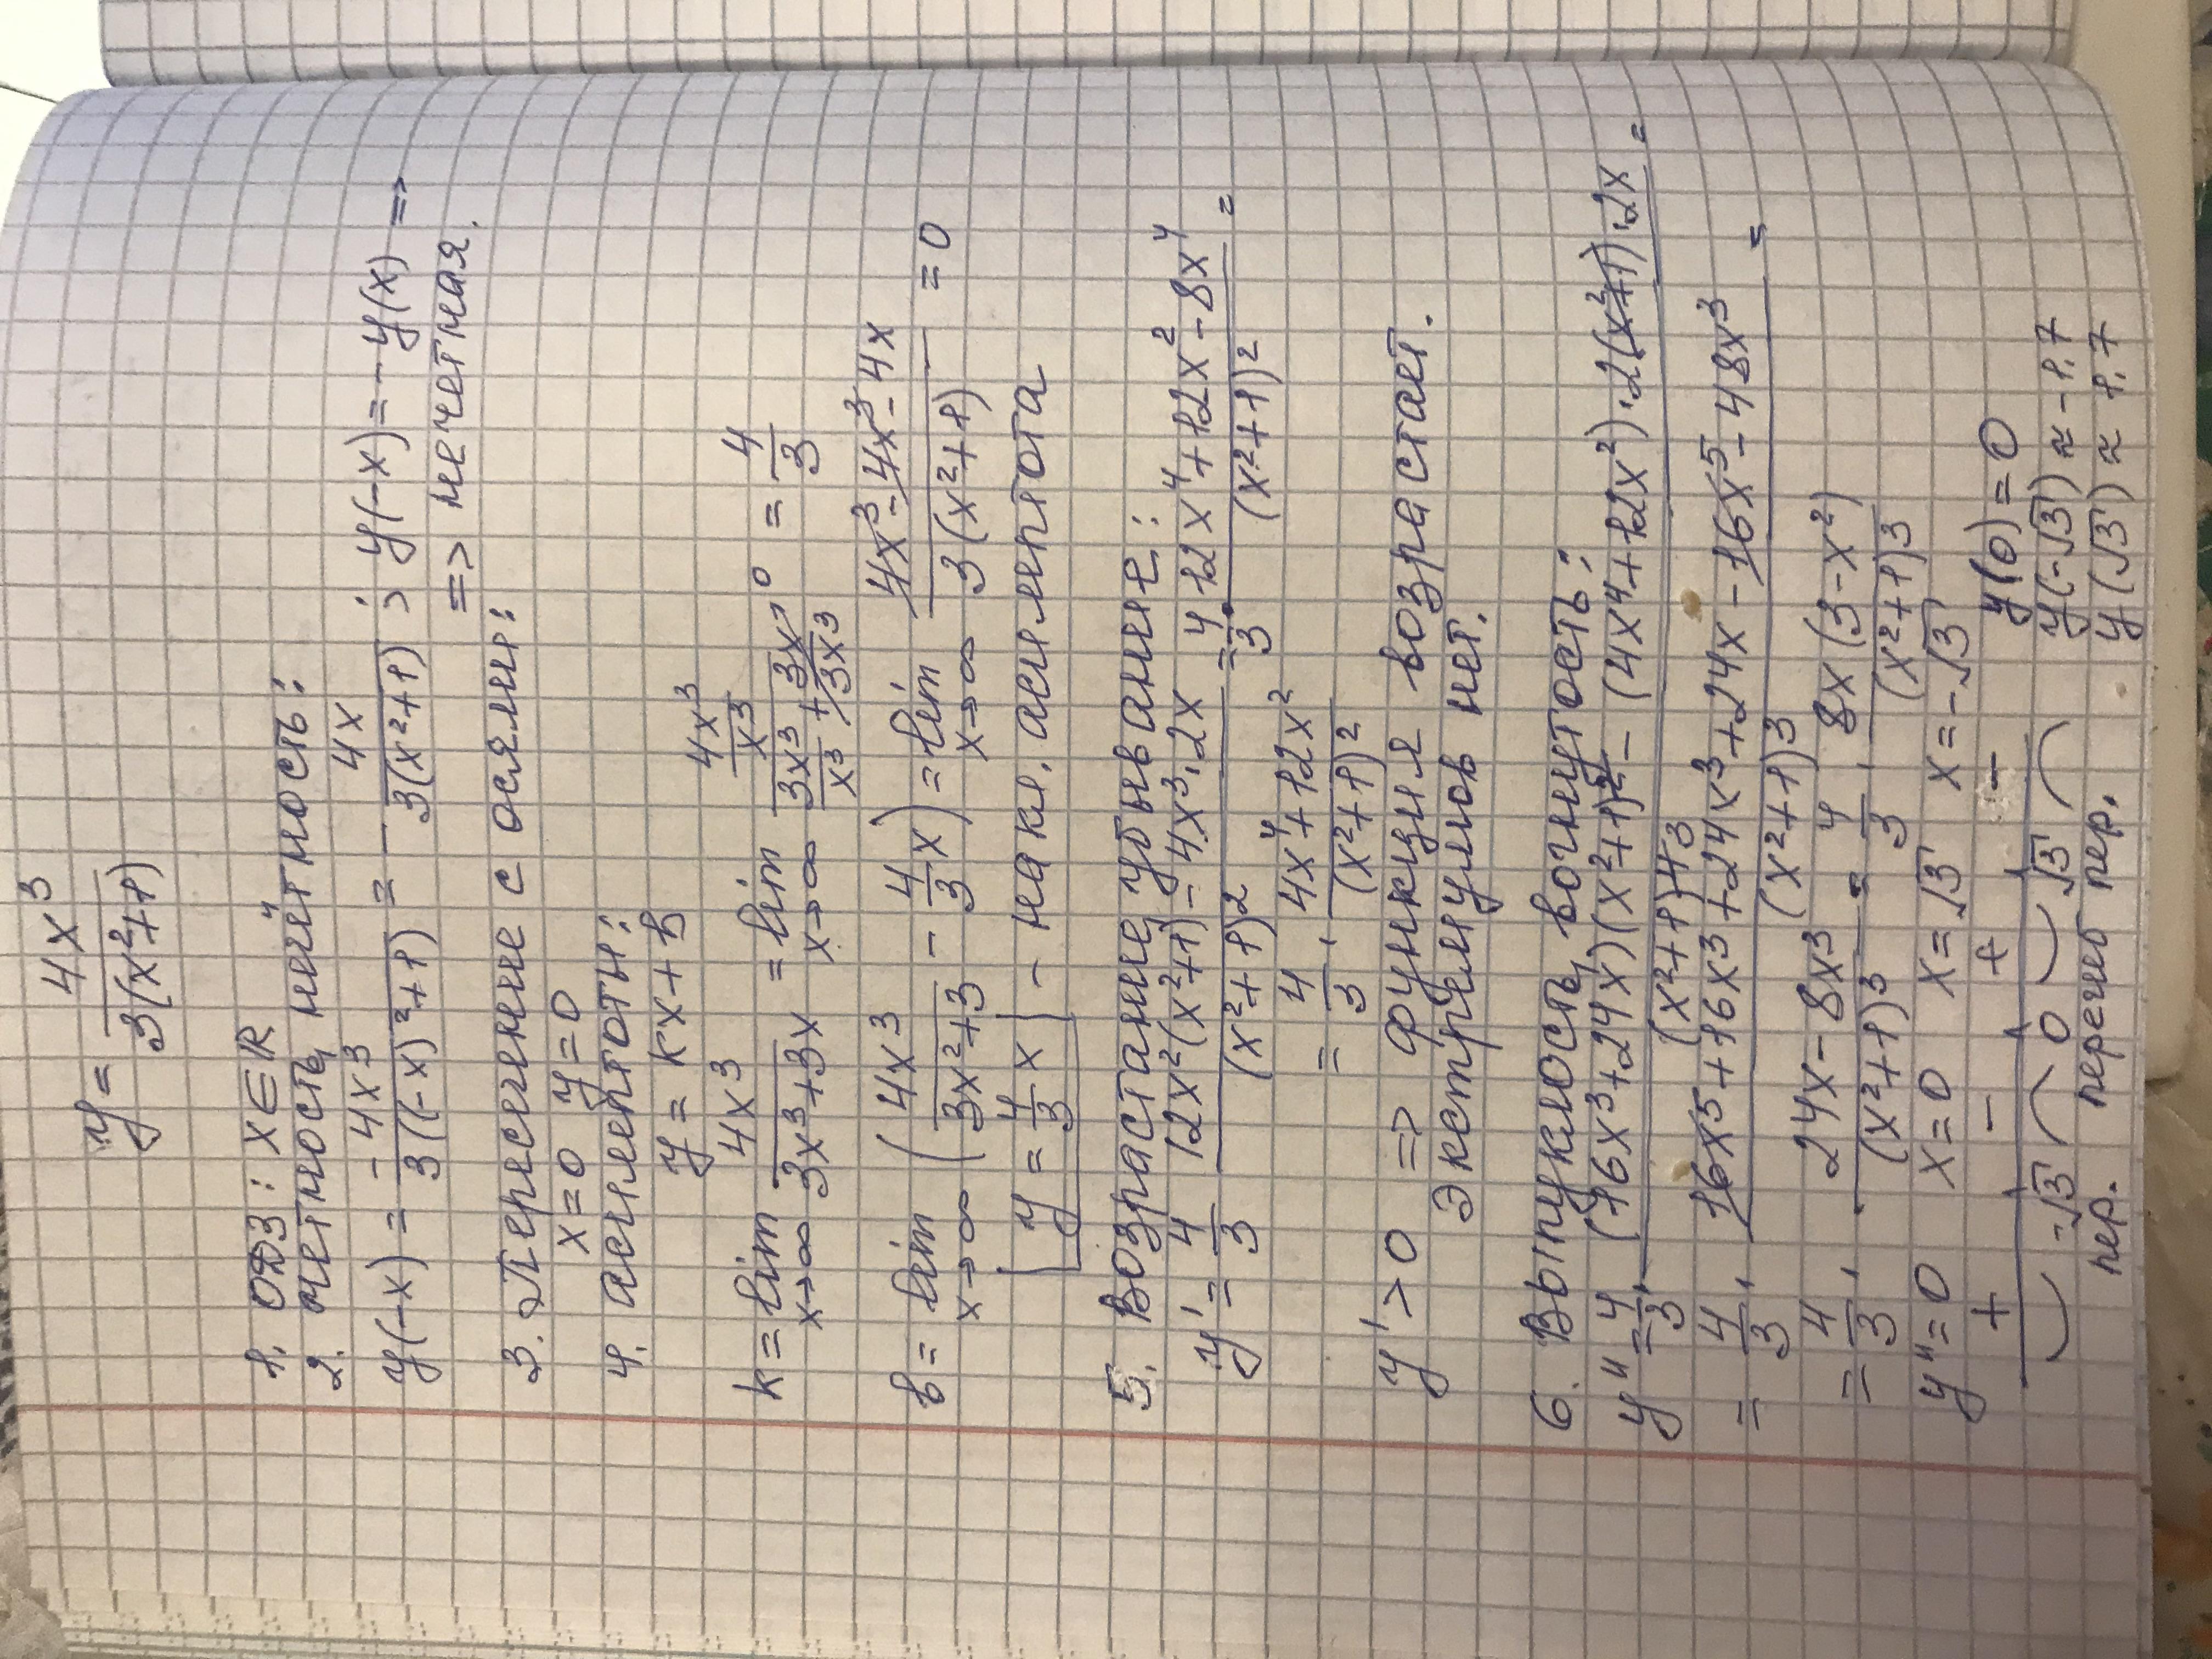 y = 4x³ / 3(x²+1)
1. ОДЗ: x∈R
2. чётность, нечётность:
y(-x) = -4x³ / 3((-x)²+1) = - 4x / 3(x²+1) ; y(-x) = -y(x) =>
=> нечетная.
3. Пересечение с осями:
x=0 y=0
4. асимптоты:
y = kx + b
k = lim x→∞ 4x³ / 3x³+3x = lim x→∞ (4x³/x³) / (3x³/x³ + 3x/3x³ → 0) = 4/3
b = lim x→∞ (4x³ / 3x²+3 - 4/3 x) = lim x→∞ 4x³-4x³-4x / 3(x²+1) = 0
y = 4/3 x - накл. асимптота
5. Возрастание, убывание:
y' = 4/3 · 12x²(x²+1) - 4x³·2x / (x²+1)² = 4/3 · 12x⁴+12x²-8x⁴ / (x²+1)² =
= 4/3 · 4x⁴+12x² / (x²+1)²
y' > 0 => функция возрастает.
Экстремумов нет.
6. Выпуклость, вогнутость:
y'' = 4/3 · (16x³+24x)(x²+1)² - (4x⁴+12x²)·2(x²+1)·2x / (x²+1)⁴ ³ =
= 4/3 · 16x⁵+16x³+24x³+24x-16x⁵-48x³ / (x²+1)³ =
= 4/3 · 24x-8x³ / (x²+1)³ = 4/3 · 8x(3-x²) / (x²+1)³
y''=0 x=0 x=√3 x=-√3
+ - + - y(0)=0
-√3 0 √3 y(-√3) ≈ -1,7
пер. перегиб пер. y(√3) ≈ 1,7